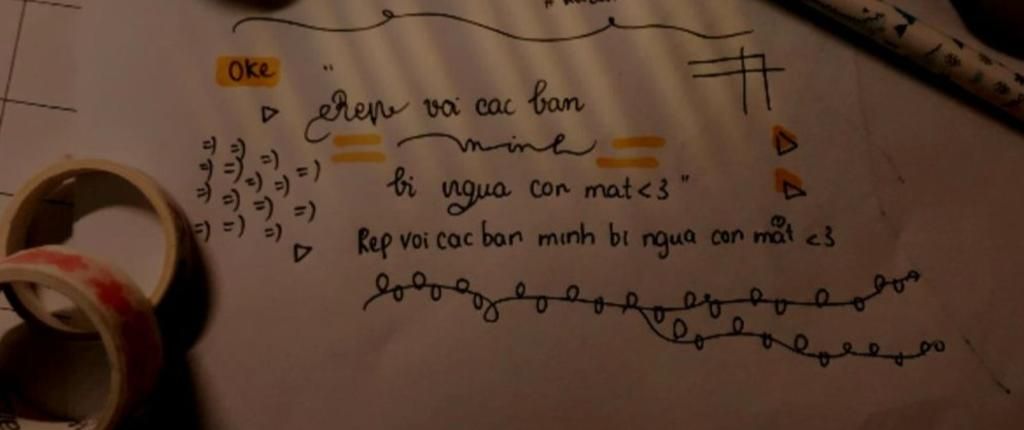 Oke
"Rep voi cac ban
minh
bi ngua con mat <3"
=) =) =) =)
=) =) =) =)
=) =) =) =)
=) =) =)
Rep voi cac ban minh bi ngua con mắt <3